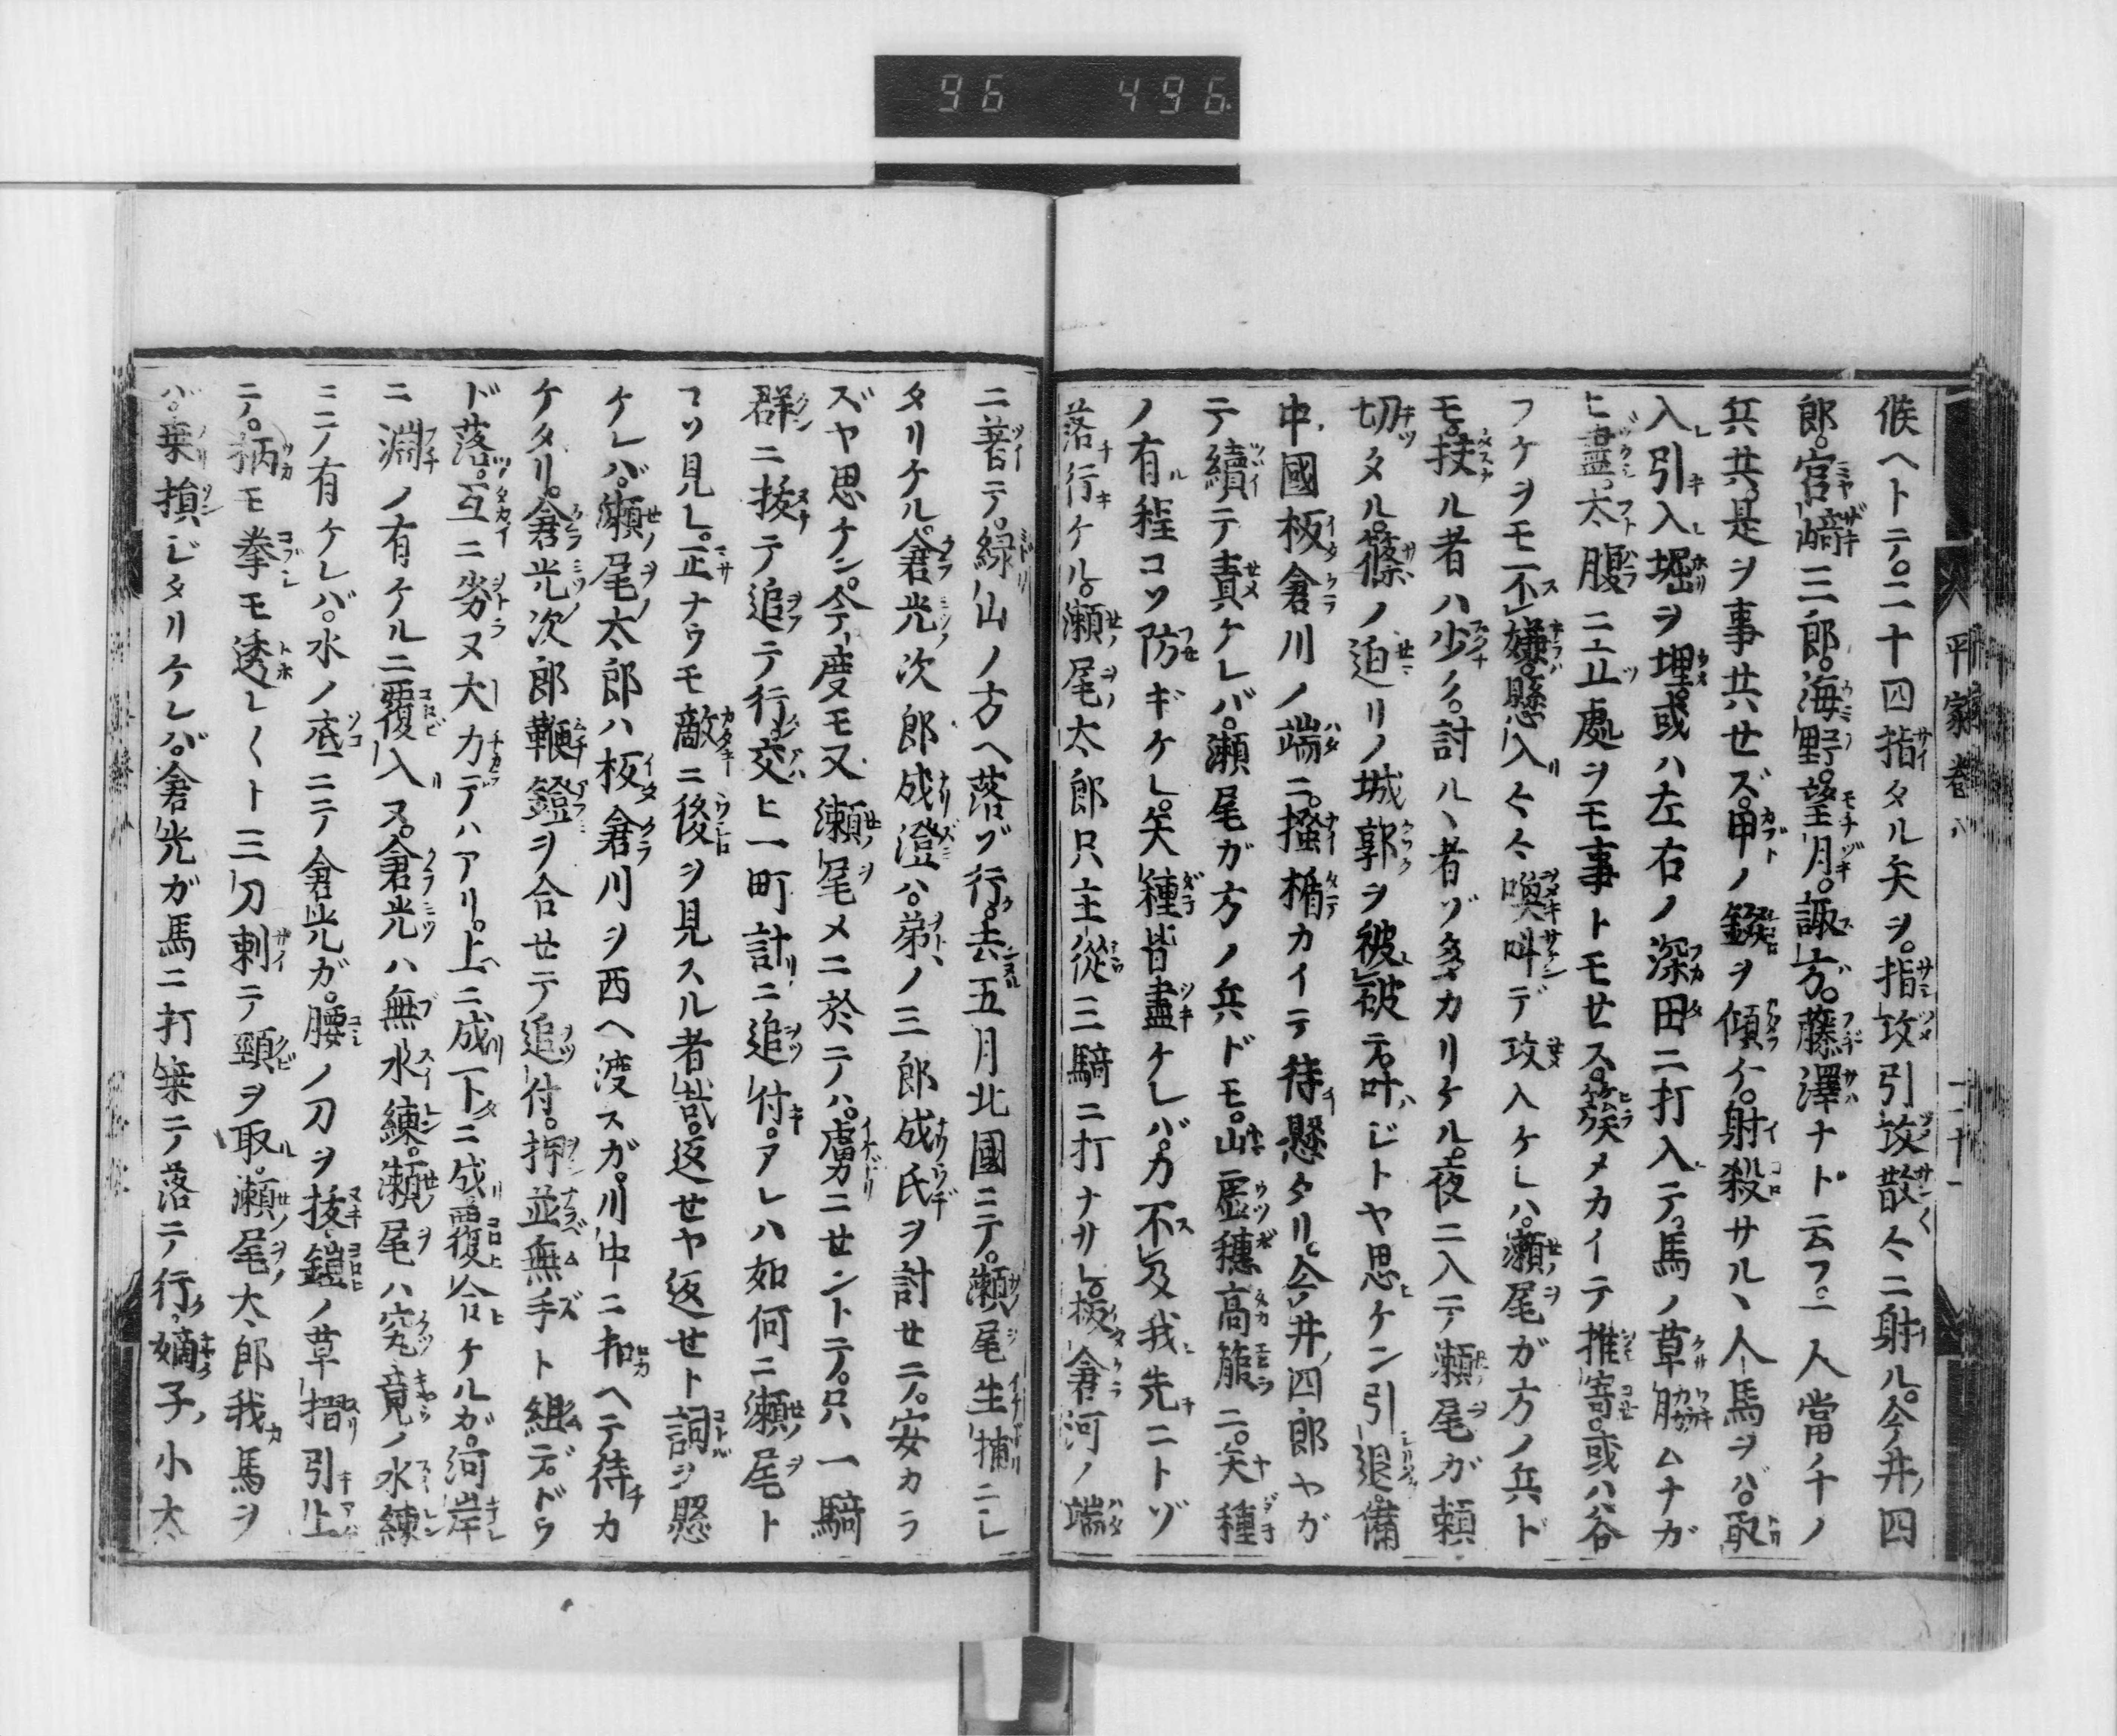 96 496
平家卷八 二十一
候ヘトテ。二十四指タル矢ヲ。指攻引攻散々ニ射ル。今井ノ四
郎。宮﨑三郎。海野。望月。諏方。藤澤ナト云フ。一人當千ノ
兵共。是ヲ事共セズ。甲ノ錣ヲ傾ケ。射殺サルヽ人馬ヲバ。取
入引入堀ヲ埋。或ハ左右ノ深田ニ打入テ。馬ノ草脇ムナガ
ヒ盡。太腹ニ立處ヲモ事トモセス。簇メカイテ推寄。或ハ谷
フケヲモ不嫌。懸入々々喚叫デ攻入ケレハ。瀬尾ガ方ノ兵ド
モ。扶ル者ハ少ク。討ルヽ者ゾ多カリケル。夜ニ入テ瀬尾ガ頼
切タル。篠ノ迫リノ城郭ヲ被破テ。叶ハジトヤ思ケン引退。備
中國板倉川ノ端ニ。掻楯カイテ待懸タリ。今井ノ四郎ヤガ
テ續テ責ケレバ。瀬尾ガ方ノ兵ドモ。山虚穗高箙ニ。矢種
ノ有程コソ防ギケレ。矢種皆盡ケレバ。力不及我先ニトゾ
落行ケル。瀬尾太郎只主從三騎ニ打ナサレ。板倉河ノ端
ニ著テ。緑山ノ方ヘ落ヅ行。去五月北國ニテ。瀬尾生捕ニシ
タリケル。倉光次郎成澄ハ。弟ノ三郎成氏ヲ討セテ。安カラ
ズヤ思ケン。今度モ又瀬尾メニ於テハ。虜ニセントテ。只一騎
群ニ抜テ追テ行。交ヒ一町計ニ追付。アレハ如何ニ瀬尾ト
コソ見レ。正ナウモ敵ニ後ヲ見スル者哉。返セヤ返セト詞ヲ懸
ケレバ。瀬尾太郎ハ板倉川ヲ西ヘ渡スガ。川中ニ扣ヘテ待カ
ケタリ。倉光次郎鞭鐙ヲ合セテ追付。押並無手ト組デドウ
ド落。互ニ劣ヌ大力デハアリ。上ニ成下ニ成覆合ケルガ。河岸
ニ淵ノ有ケルニ覆入ヌ。倉光ハ無水練。瀬尾ハ究竟ノ水練
ニテ有ケレバ。水ノ底ニテ倉光ガ。腰ノ刀ヲ抜。鎧ノ草摺引上
テ。柄モ拳モ透レ〱ト三刀刺テ頸ヲ取。瀬尾太郎我馬ヲ
バ。乗損ジタリケレバ。倉光ガ馬ニ打乗テ落テ行。嫡子ノ小太